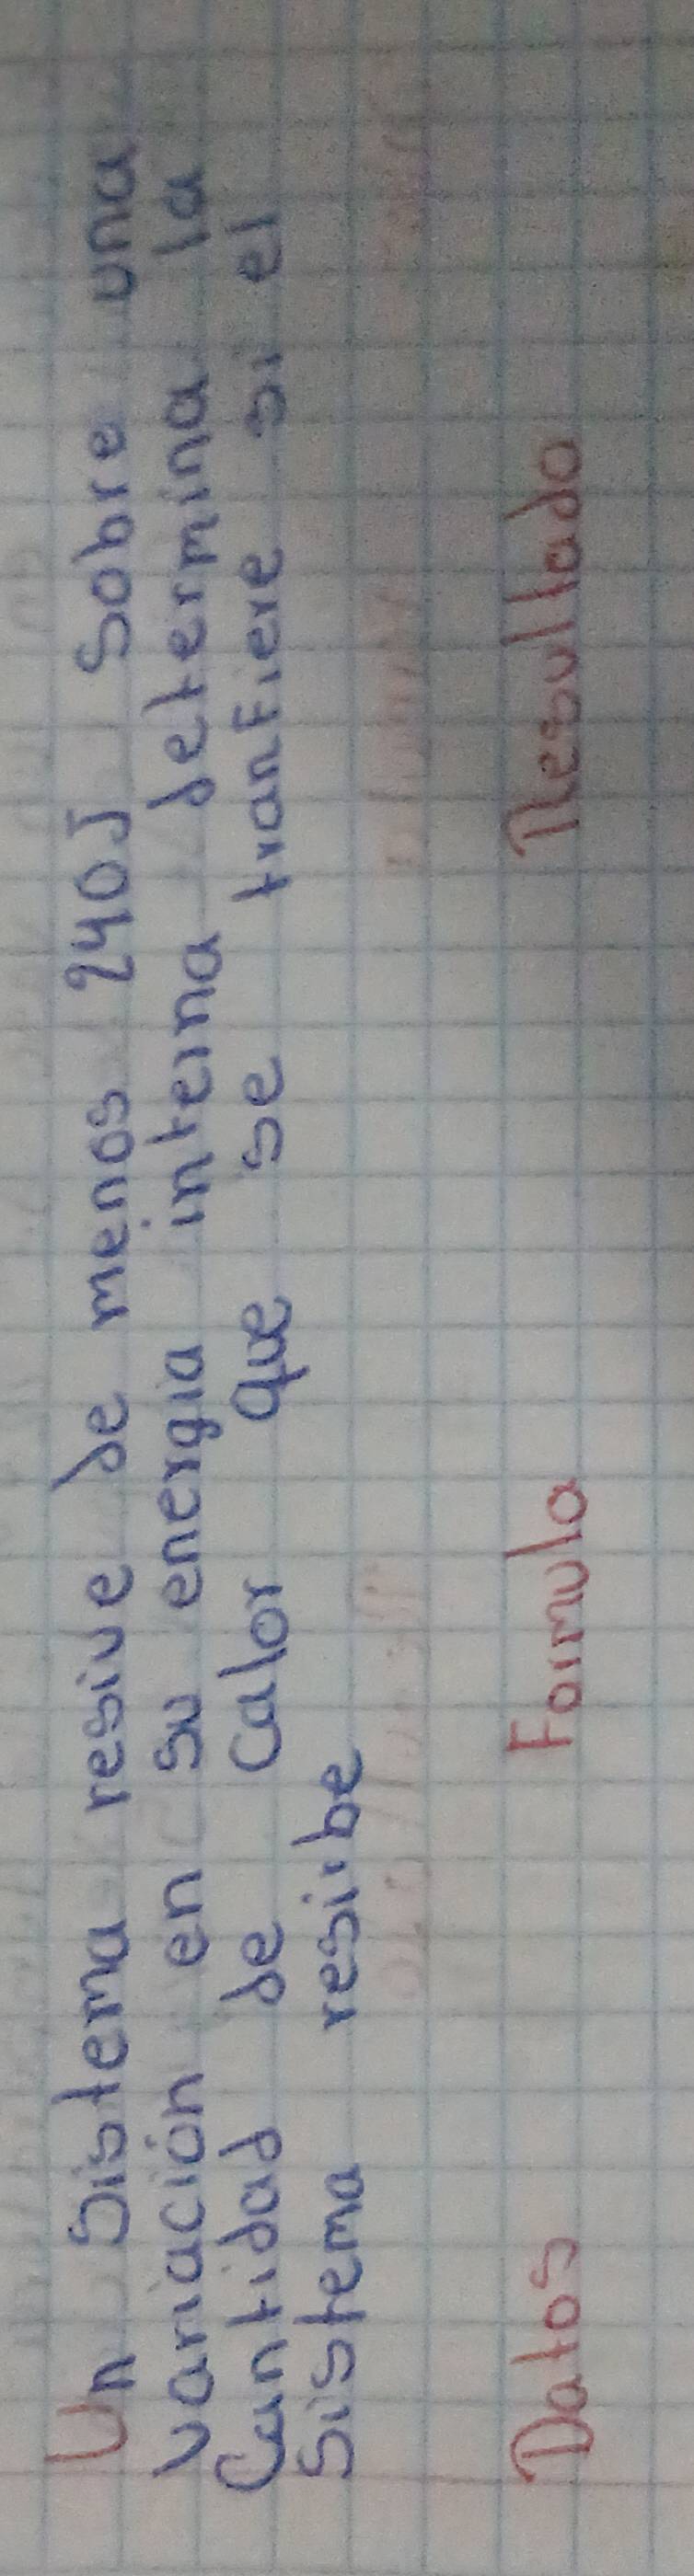 Un Sistema resive de menos 240J Sobre una
variación en su energia interna determina la
Cantidad de Calor que se tranfiere si el
Sistema resibe
Datos Formula Resultado